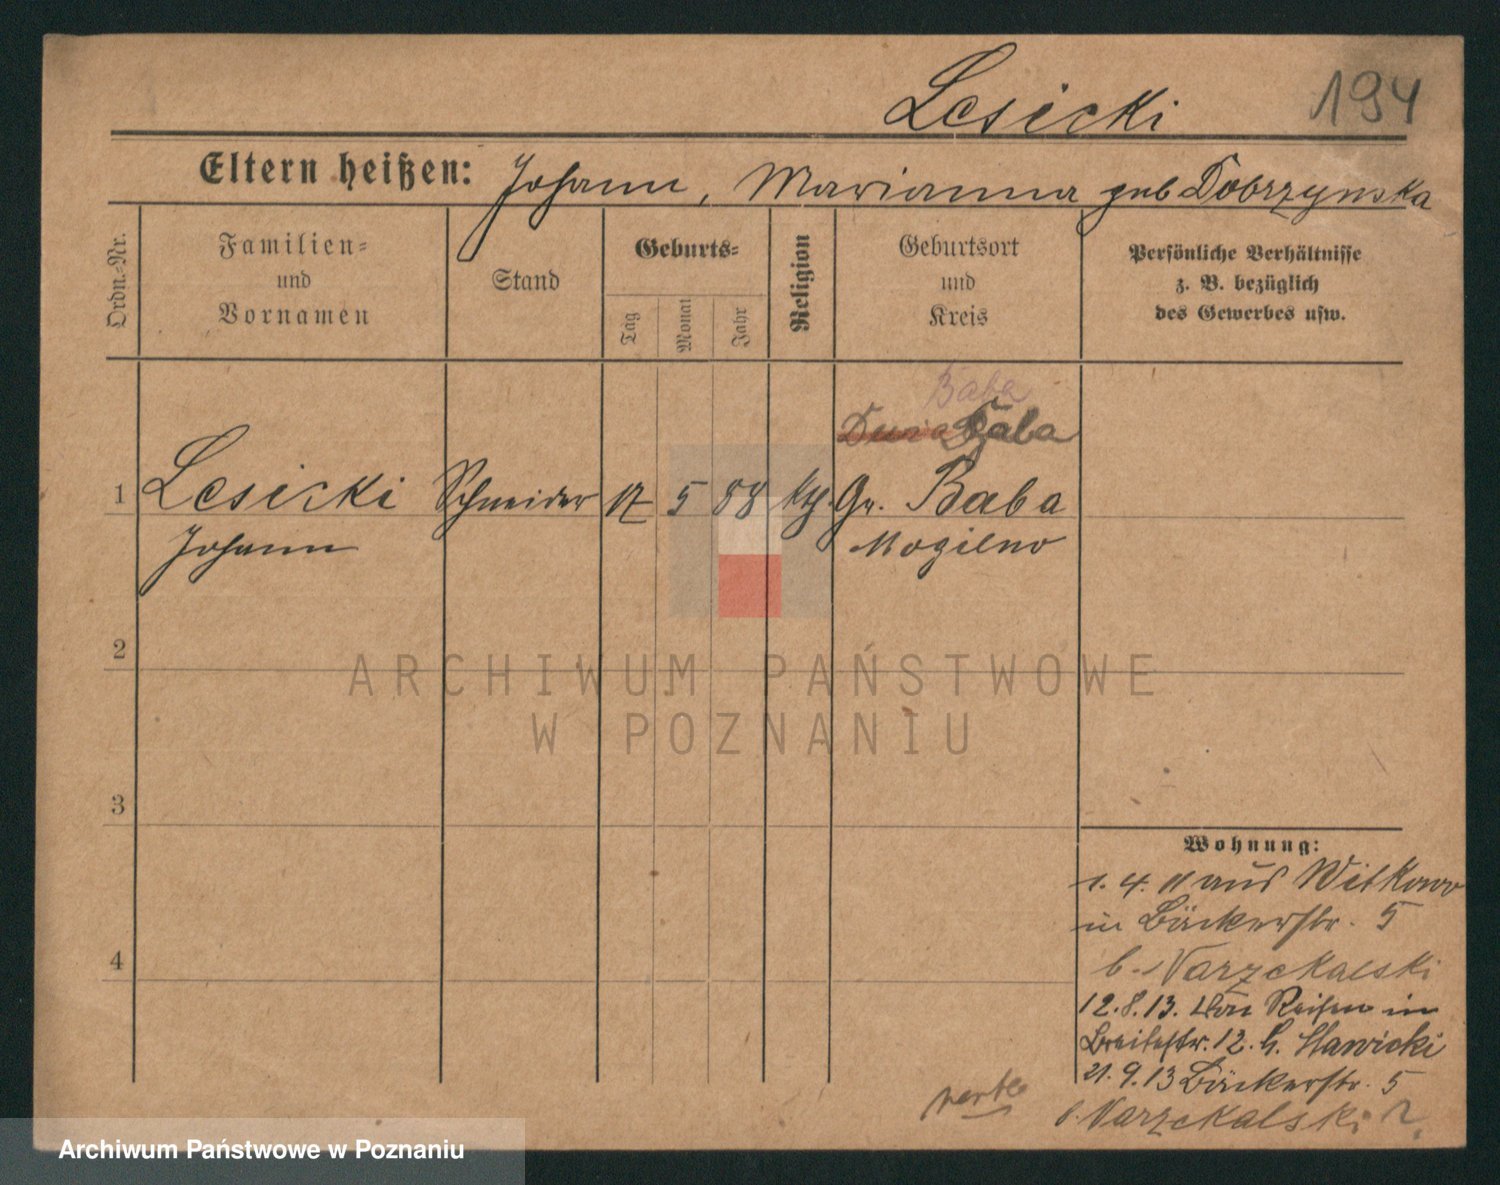 Lesicki
194
Eltern heißen: Johann, Marianna geb Dobrzynska
Ordn.-Nr.
Familien-
und
Vornamen
Stand
Geburts-
Tag
Monat
Jahr
Religion
Geburtsort
und
Kreis
Persönliche Verhältnisse
z. B. bezüglich
des Gewerbes usw.
Baba
Baba
1 Lesicki Schneider 17 5 88 kth. Gr. Baba
Johann Mogilno
2
3
4
Wohnung:
1. 4. 11 aus Witkowo
in Bäckerstr. 5
b. Narzekalski
12. 8. 13. Von Reisen in
Breitestr. 12. b. Slawicki
21. 9. 13 Bäckerstr. 5
b. Narzekalski
verte
ARCHIWUM PAŃSTWOWE
W POZNANIU
Archiwum Państwowe w Poznaniu